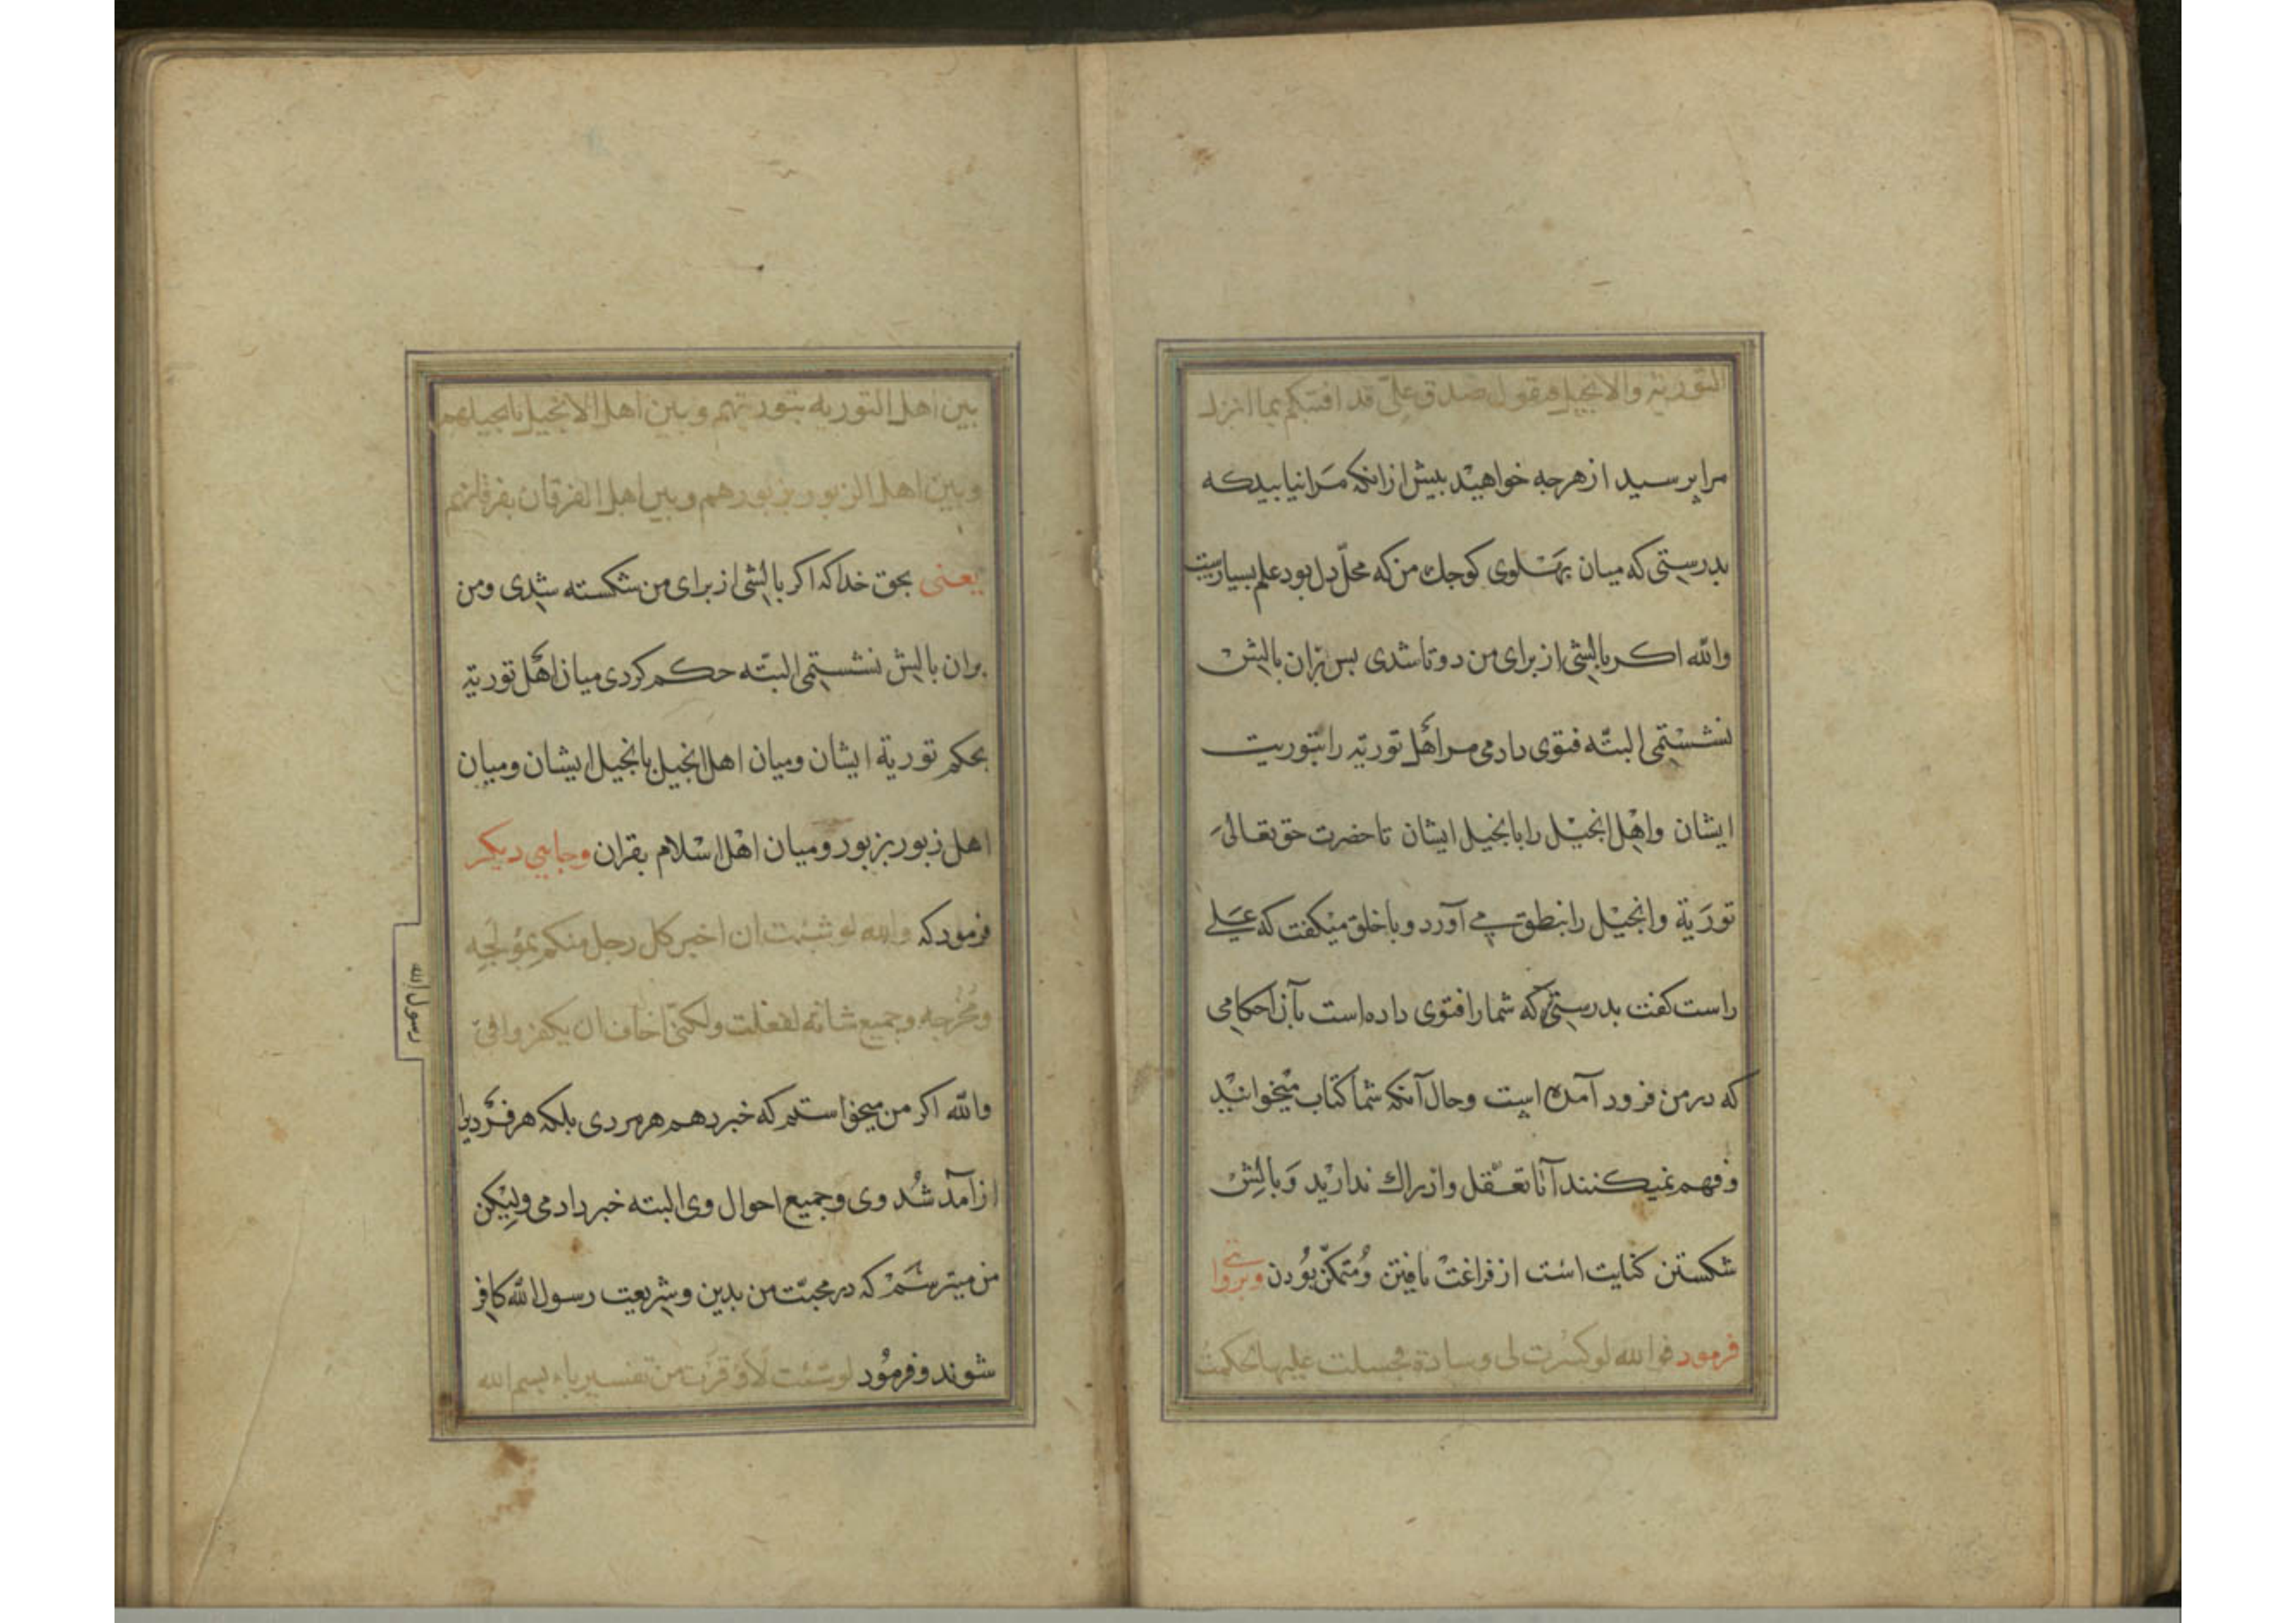 التوریة والانجیل فیقول صدق علیّ قد افتیکم بما انزل
مرا پرسید از هرچه خواهید بیش ازانکه مرا نیابید که
بدرستی که میان پهلوی کوچک من که محلّ دل بود علم بسیارست
والله اکر بالشی از برای من دوتا شدی بس بران بالش
نشستمی البتّه فتوی دادمی مر اهل توریة را بتوریت
ایشان واهل انجیل را بانجیل ایشان تا حضرت حق تعالی
توریة وانجیل را بنطق می آورد وبا خلق میکفت که علی
راست کفت بدرستی که شما را فتوی داده است بآن احکامی
که در من فرود آمده است وحال آنکه شما کتاب میخوانید
وفهم نمیکنند آنا تعقل وادراك ندارید وبالش
شکستن کنایت است از فراغت یافتن ومتمکّن بودن وبروایتی
فرمود فوالله لو کسرت لی وسادة فجلست علیها لحکمت
بین اهل التوریه بتوریتهم وبین اهل الانجیل بانجیلهم
وبین اهل الزبور بزبورهم وبین اهل الفرقان بفرقانهم
یعنی بحق خدا که اکر بالشی از برای من شکسته شدی ومن
بران بالش نشستمی البتّه حکم کردی میان اهل توریة
بحکم توریة ایشان ومیان اهل انجیل بانجیل ایشان ومیان
اهل زبور بزبور ومیان اهل اسلام بقران وجایی دیکر
فرمود که والله لو شئت ان اخبر کل رجل منکم بمولجه
ومخرجه وجمیع شانه لفعلت ولکنّی اخاف ان یکفروا فیّ
والله اکر من میخواستم که خبر دهم هر مردی بلکه هر فردیرا
از آمد شد وی وجمیع احوال وی البته خبر دادمی ولیکن
من میترسم که در محبّت من بدین وشریعت رسول الله کافر
شوند وفرمود لو شئت لاوقرت من تفسیر باء بسم الله
رسول الله